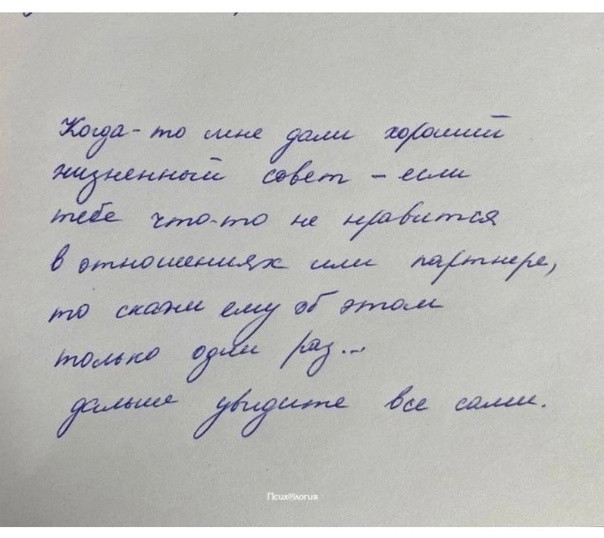 Когда-то мне дали хороший
жизненный совет - если
тебе что-то не нравится
в отношениях или партнере,
то скажи ему об этом
только один раз...
дальше увидите все сами.
Псих®логия